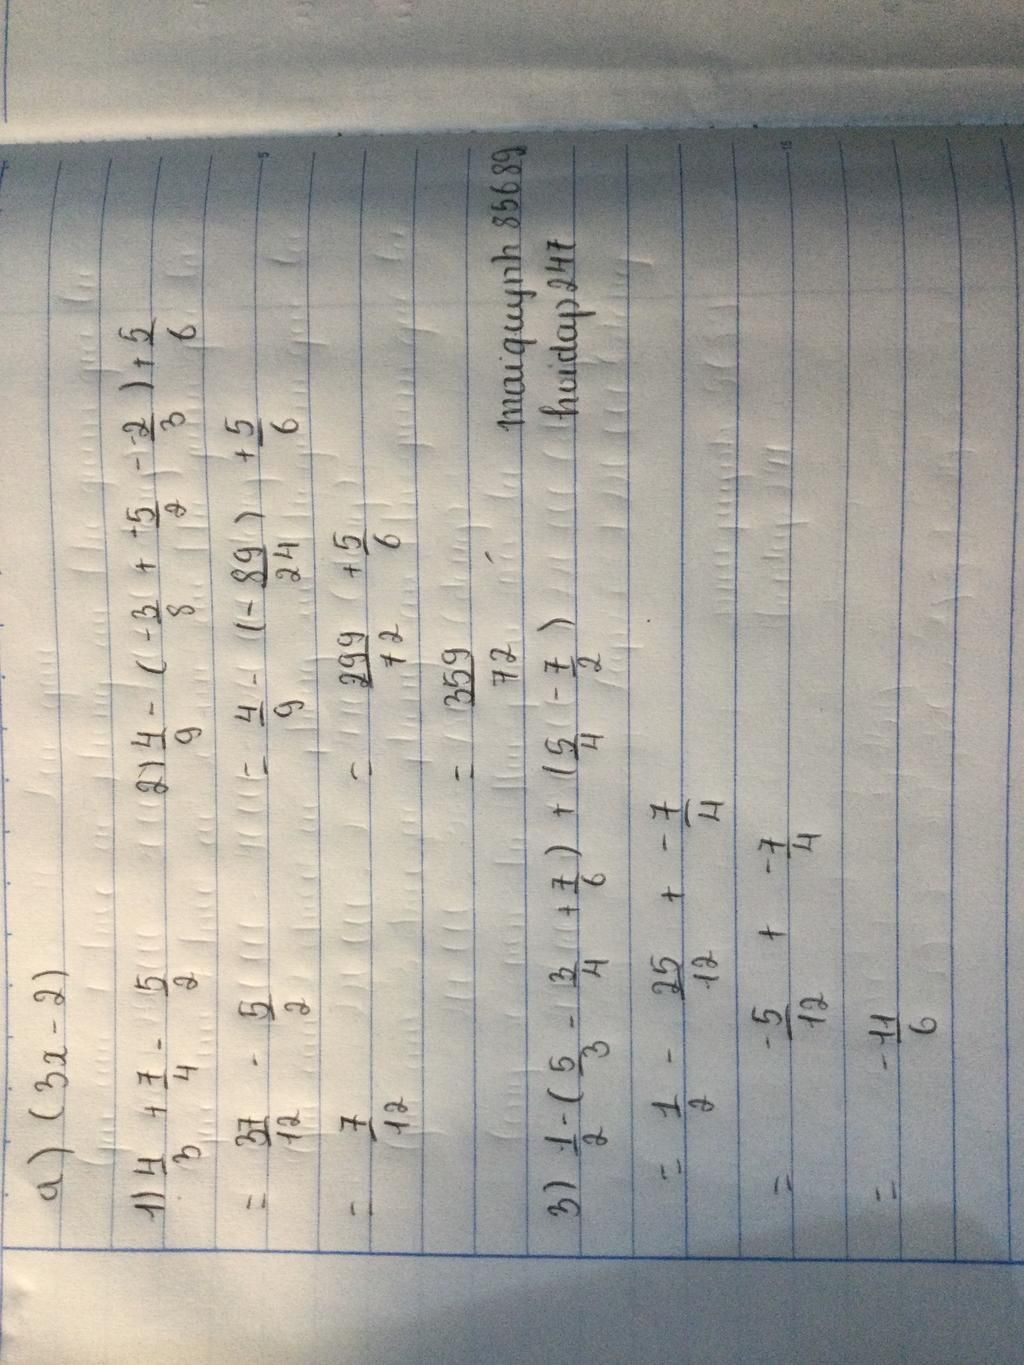 a) (3x - 2)
1) 4/3 + 7/4 - 5/2
= 37/12 - 5/2
= 7/12
2) 4/9 - ( -3/8 + -5/2 - -2/3 ) + 5/6
= 4/9 - ( - 89/24 ) + 5/6
= 299/72 + 5/6
= 359/72
maiquynh 85689
hoidap247
3) 1/2 - ( 5/3 - 3/4 + 7/6 ) + ( 5/4 - 7/2 )
= 1/2 - 25/12 + -7/4
= -5/12 + -7/4
= -11/6